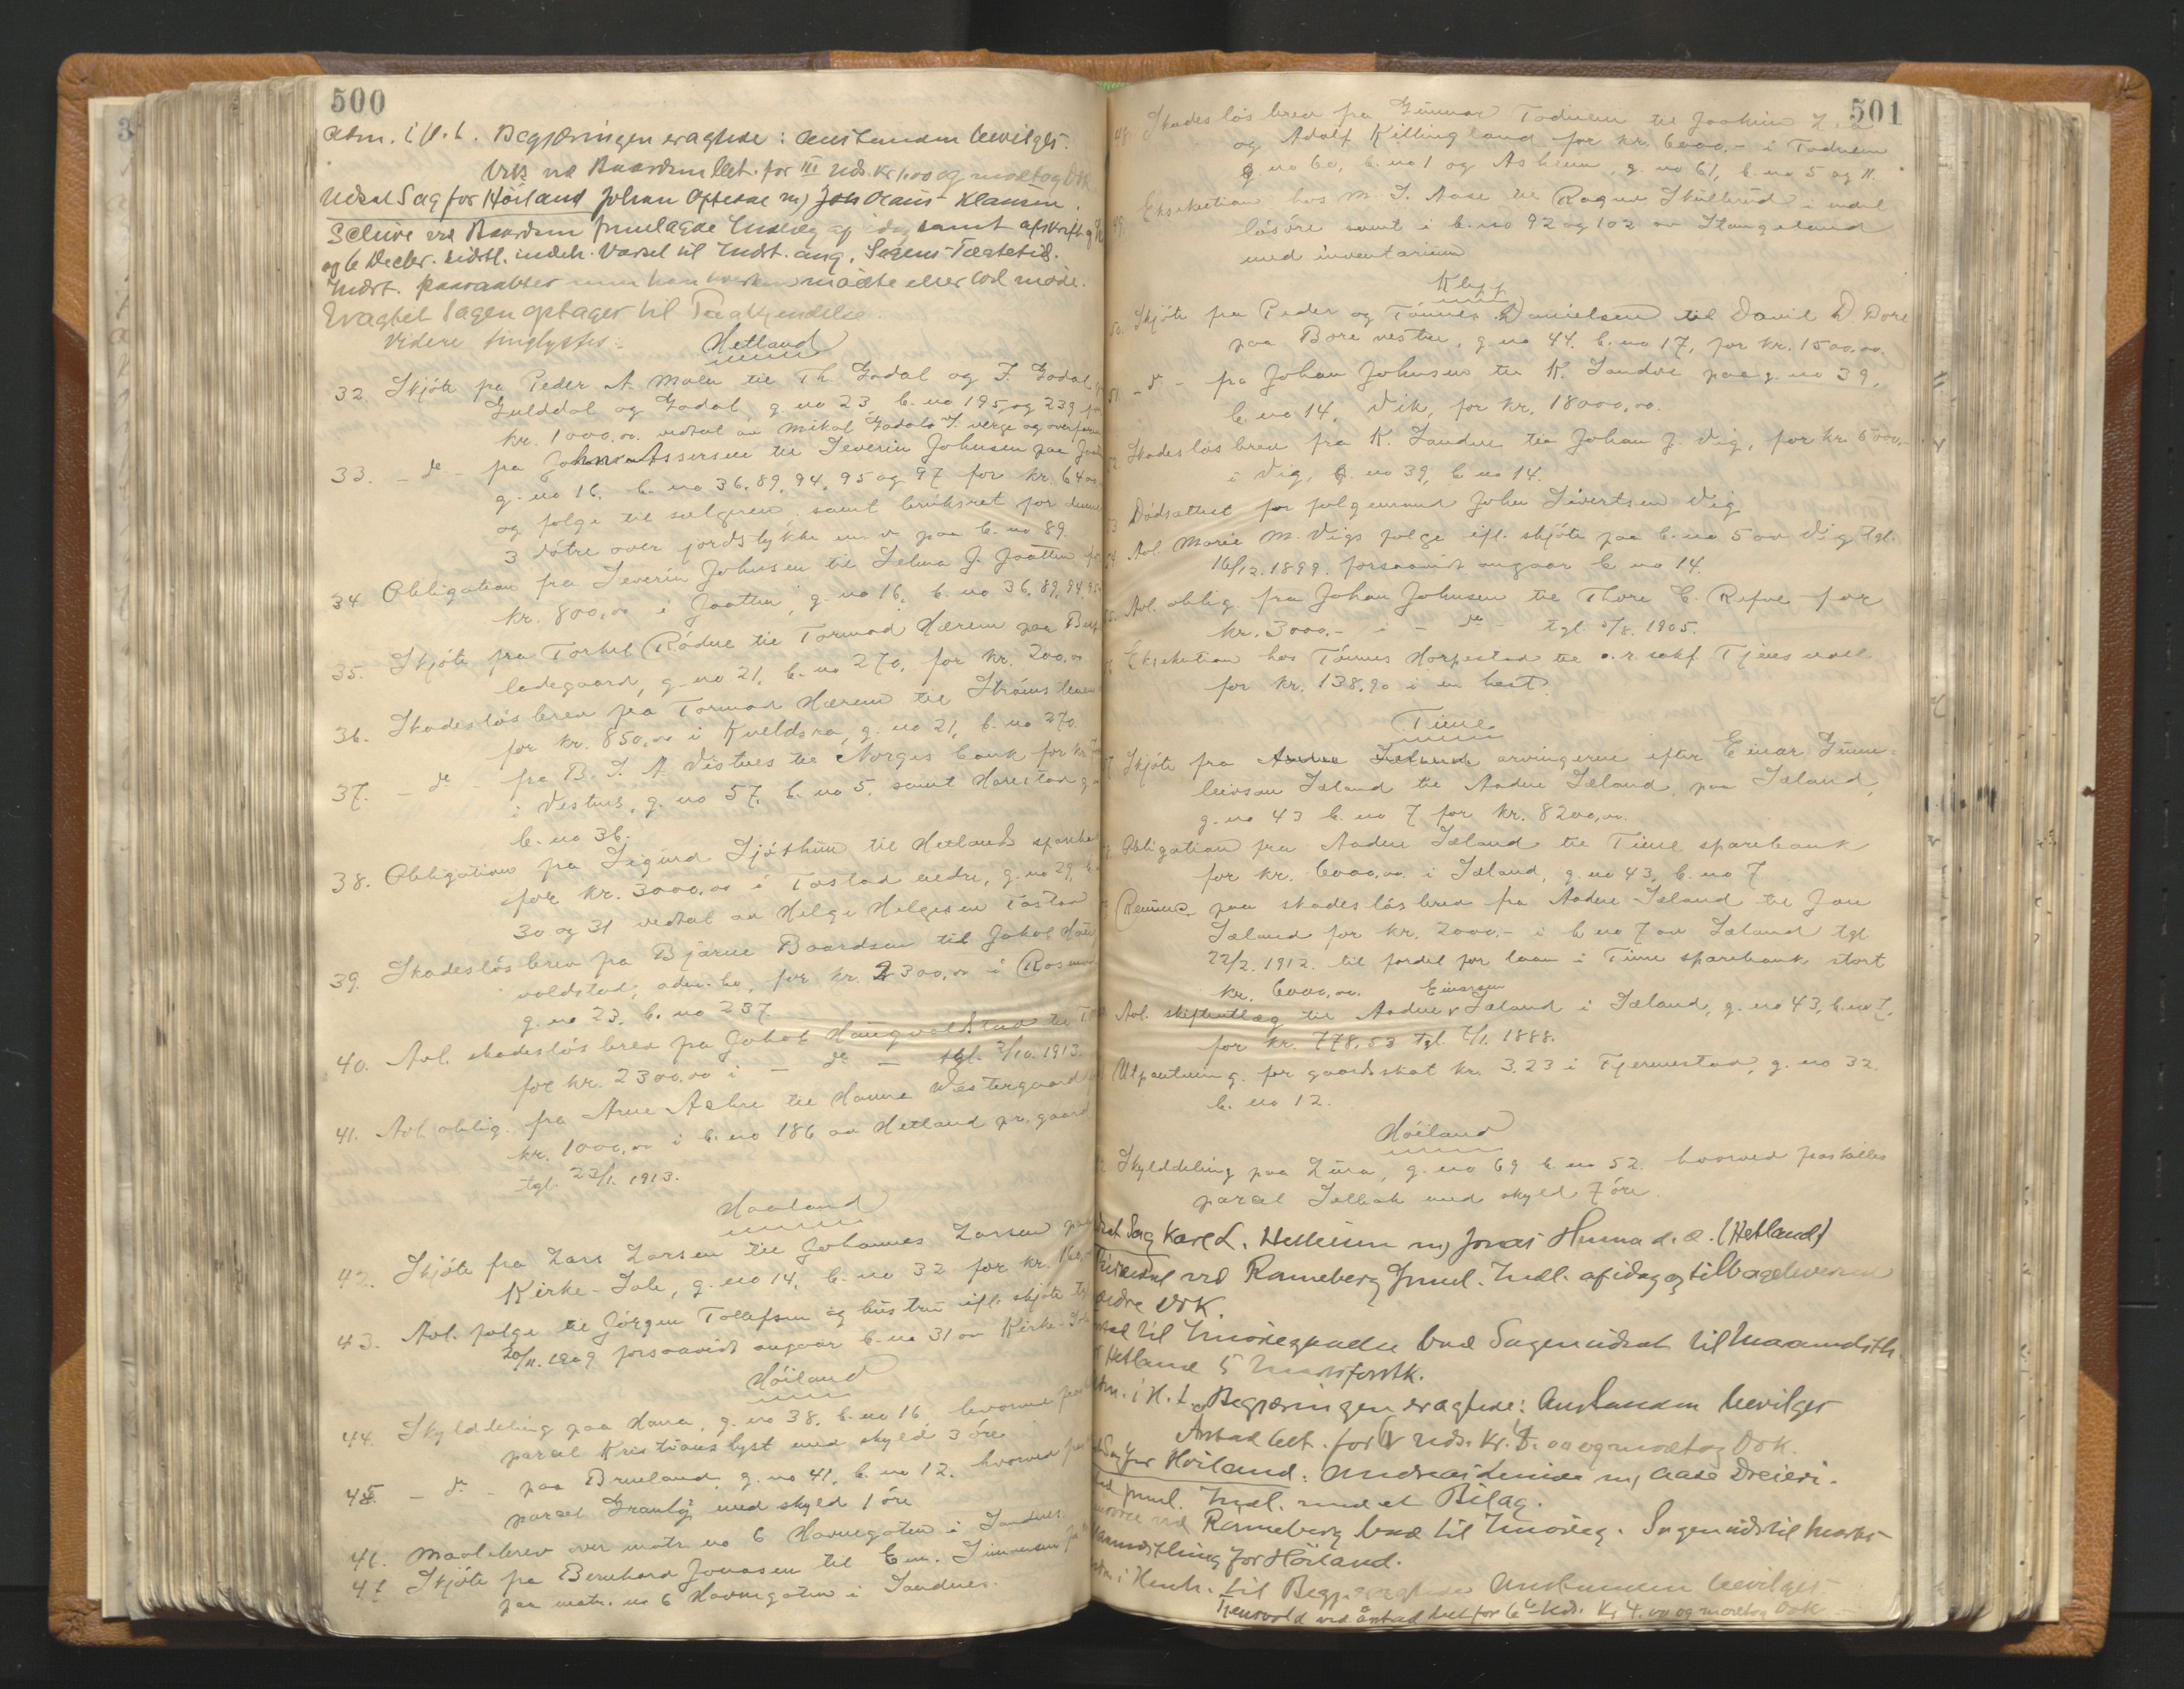 500
Adm. i H. t. Begjæringen eragtede: Anstanden bevilges.
ved Baardsen bet. for III Uds. Kr 1.00 og modtog Dok.
Udsat Sag for Höiland Johan Opstad m) Claus Klausen.
ved Baardsen fremlagde Indlæg af idag samt afskrift
og 6 Decbr. sidstl. indeh. Varsel til Indst. ang. Sagens Foretagelse.
Indst. paaraabtes men han hverken mødte eller lod møde.
Eragtet Sagen optages til Paakjendelse.
Videre tinglystes:
Hetland
32. Skjöte fra Peder A. Molen til Th. Godal og I. Godal
Gulddal og Godal g. no 23, b. no 195 og 239 for
kr. 1000,00 vedtat av Mikal Godals verge og overform.
33. - do - fra Johnas Assersen til Severin Johnsen paa Jaatten
g. no 16, b. no 36, 89, 94, 95 og 97 for kr. 6400,-
og folge til sælgeren samt bruksret for dennes
3 dötre over jordstykke m. v. paa b. no 89.
34 Obligation fra Severin Johnsen til Selma J. Jaatten for
kr. 800,00 i Jaatten, g. no 16, b. no 36, 89, 94, 95
35. Skjöte fra Torkel Rödne til Tormod Hærem paa Buö
ladegaard, g. no 21, b. no 270, for kr. 200,00
36. Skadeslösbrev fra Tormod Hærem til Ströms
for kr. 850,00 i Kveldsro, g. no 21, b. no 270.
37. - do - fra B. S. A. Vistnes til Norges bank for kr.
i Vistnes, g. no 57, b. no 5, samt Harestad g.
b. no 36.
38. Obligation fra Sigurd Sjöthun til Hetlands sparebank
for kr. 3000,00 i Tastad nedre, g. no 29, b.
30 og 31 vedtat av Helge Helgesen Tastad
39. Skadeslösbrev fra Bjarne Baardsen til Jakob Haug
valdstad, adm. bo, for kr. 2300,00 i Rosen
g. no 23, b. no 237
40. Avl. skadeslösbrev fra Jakob Haugvaldstad til
for kr. 2300,00 i - do - tgl. 2/10. 1913.
41. Avl. oblig. fra Arne Asbu til Hanna Westergaard
kr. 1000,00 i b. no 186 av Hetland pr. gaard
tgl. 23/1. 1913.
Haaland
42. Skjöte fra Lars Larsen til Johannes Larsen paa
Kirke-Sole, g. no 14, b. no 32 for kr. 160,00
43. Avl. folge til Jörgen Tollefsen og hustru ifl. skjöte tgl
20/11. 1909 forsaavidt angaar b. no 31 av Kirke-Sole
Höiland
44. Skylddeling paa Hana, g. no 38, b. no 16, hvorved fra
parcel Kristianslyst med skyld 3 öre.
45. - do - paa Brueland, g. no 41, b. no 12. hvorved fra
parcel Granly med skyld 1 öre
46. Maalebrev over matr. no 6 Havnegaten i Sandnes.
47 Skjöte fra Bernhard Jonasen til Em. Simonsen
paa matr. no 6 Havnegaten i Sandnes.
501
48. Skadeslösbrev fra Gunnar Todnem til Joakim
og Adolf Kittingland for kr. 6000.- i Todnem
g. no 60, b. no 1 og Asheim, g. no 61, b. no 5 og 11.
49. Eksekution hos M. S. Aase til Ragna Skulbrud i endel
lösöre samt i b. no 92 og 102 av Stangeland
med inventarium
Klep
50. Skjöte fra Peder og Tönnes Danielsen til David D Bore
paa Bore vestre, g. no 44, b. no 17, for kr. 1500,00.
51. - do - fra Johan Johnsen til K. Sandve paa g. no 39,
b. no 14, Vik, for kr. 18000,00.
52. Skadeslösbrev fra K. Sandve til Johan J. Vig, for kr. 5000,-
i Vig, g. no 39, b. no 14.
53 Dödsattest for folgemand John Sivertsen Vig
54. Avl. Marie M. Vigs folge ifl. skjöte paa b. no 5 av Vig tgl.
16/12. 1899. forsaavidt angaar b. no 14.
55. Avl. oblig. fra Johan Johnsen til Thore E. Refve for
kr. 3000.- i - do - tgl. 5/8. 1905.
Eksekution hos Tönnes Horpestad til o.r. sakf. Tjensvoll
for kr. 138,90 i en hest.
Time
Skjöte fra arvingerne efter Einar Gunn-
leivsen Iæland til Andne Iæland, paa Iæland,
g. no 43 b. no 7 for kr. 8200,00.
Obligation fra Andne Iæland til Time sparebank
for kr. 6000,00. i Iæland, g. no 43, b. no 7
Renunc. paa skadeslösbrev fra Andne Iæland til Jon
Iæland for kr. 2000.- i b. no 7 av Iæland tgl
22/2. 1912. til fordel for laan i Time sparebank stort
kr. 6000,00.
Avl. skifteutlæg til Andne Einarsen Iæland i Iæland, g. no 43, b. no 7,
for kr. 778.53 tgl. 7/1. 1888.
Utpantning for gaardskat kr. 3.23 i Fjermestad, g. no 32.
b. no 12.
Höiland
Skylddeling paa Lura, g. no 69 b. no 52. hvorved fraskilles
parcel Solbak med skyld 7 öre.
Sag Karl L. Helleisen m) Jonas Hinna d. æ. (Hetland)
ved Ronneberg freml. Indl. af idag og tilbageleverede
Dok.
til Imödegaaelse bad Sagen udsat til Maanedsth.
Hetland 5
Adm. i H. t. Begjæringen eragtede: Anstanden bevilges
Anstad bet. for V Uds. Kr. 3.00 og modtog Dok.
Sag for Höiland: Andreas m) Aase Dreieri.
freml. Indl. med et Bilag.
ved Ronneberg bad til Imödeg. Sagen uds. til Marts
Maanedsthing for Höiland.
Adm. i Henh. til Begj. eragtede Anstanden bevilges
Tjensvold ved Anstad bet. for 6te Uds. Kr 4.00 og modtog Dok